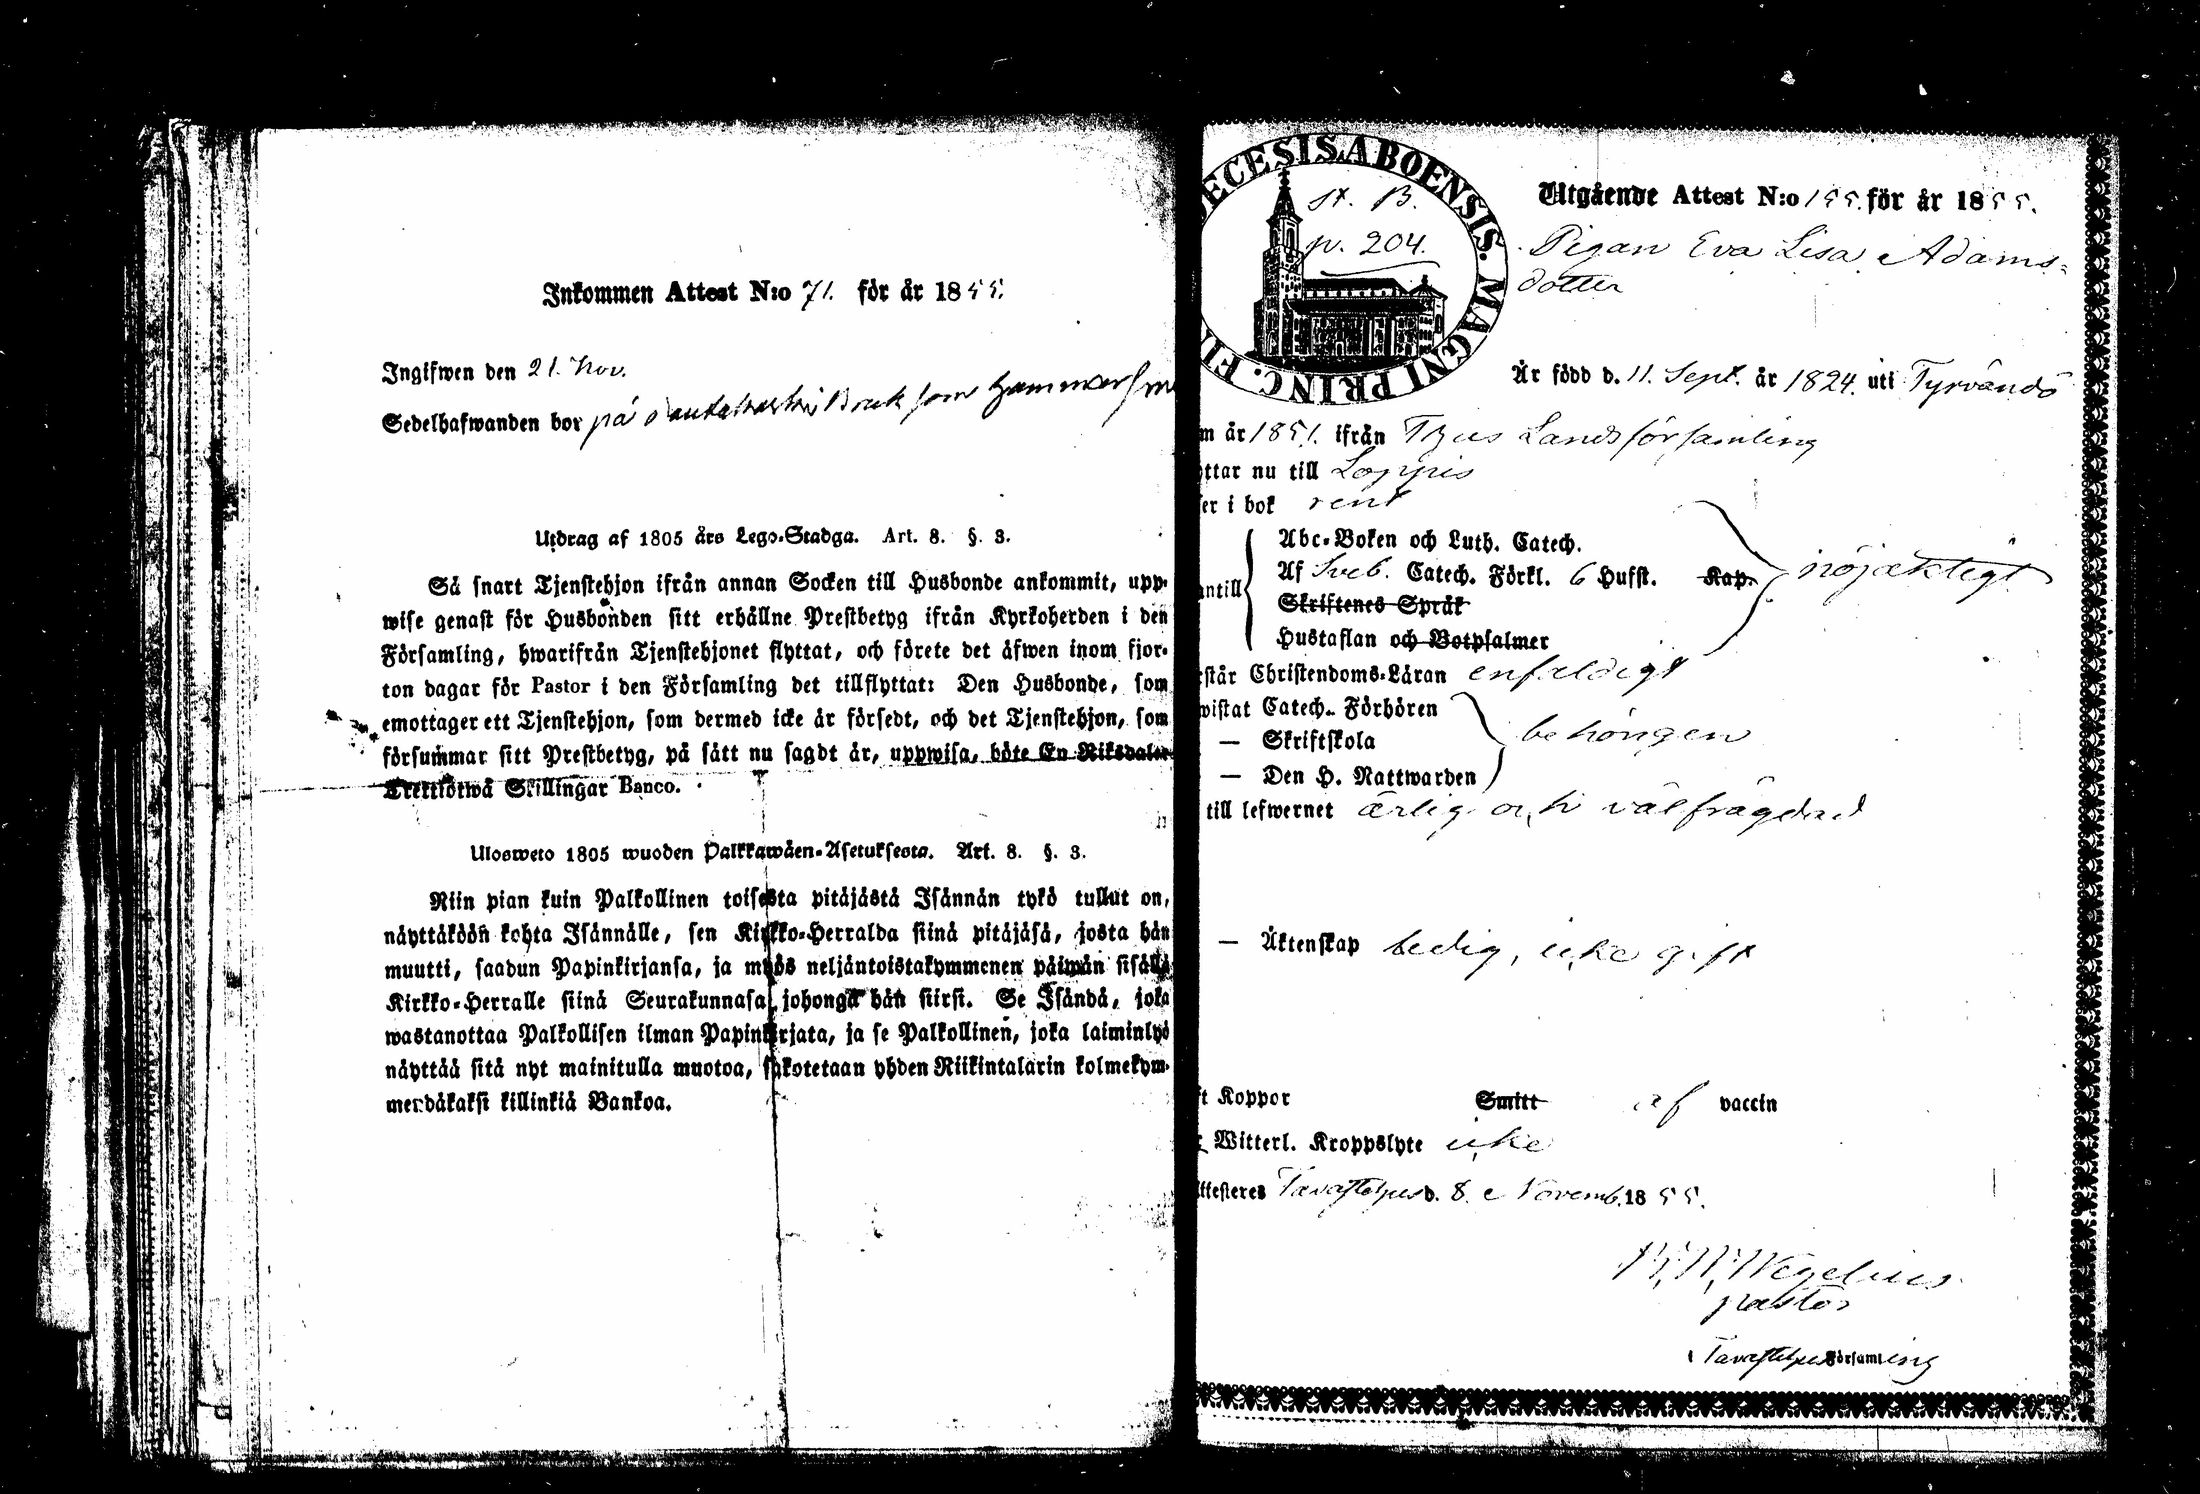 Inkommen Attest N:o 71. för år 1855.
Ingifwen den 21. Nov.
Sedelhafwanden bor på Bruk som Hammarsme
Utdrag af 1805 års Lego-Stadga. Art. 8. §. 3.
Så snart Tjenstehjon ifrån annan Socken till Husbonde ankommit, upp-
wise genast för Husbonden sitt erhållne Prestbetyg ifrån Kyrkoherden i den
Församling, hwarifrån Tjenstehjonet flyttat, och förete det äfwen inom fjor-
ton dagar för Pastor i den Församling det tillflyttat: Den Husbonde, som
emottager ett Tjenstehjon, som dermed icke är försedt, och det Tjenstehjon, som
försummar sitt Prestbetyg, på sätt nu sagdt är, uppwisa, böte En Riksdaler
Trettiotwå Skillingar Banco.
Ulosweto 1805 wuoden Palkkawäen-Asetuksesta. Art. 8. §. 3.
Niin pian kuin Palkollinen toisesta pitäjästä Isännän tykö tullut on,
näyttäköön kohta Isännälle, sen Kirkko-Herralda siinä pitäjäsä, josta hän
muutti, saadun Papinkirjansa, ja myös neljäntoistakymmenen päiwän sisällä
Kirkko-Herralle siinä Seurakunnasa johonga hän siirsi. Se Isändä, joka
wastanottaa Palkollisen ilman Papinkirjata, ja se Palkollinen, joka laiminlyö
näyttää sitä nyt mainitulla muotoa, sakotetaan yhden Riikintalarin kolmekym-
mendäkaksi killinkiä Bankoa.
ECESIS ABOENSIS. MAGNI PRINC. FI
st. B.
p. 204.
Utgående Attest N:o 155. för år 1855.
Pigan Eva Lisa Adams-
dotter
Är född d. 11. Sept. år 1824. uti Tyrvändö
m år 1851. ifrån Thus Landsförsamling
ttar nu till Loppis
er i bok rent
Abc-Boken och Luth. Catech.
Af Sveb. Catech. Förkl. 6 Hufst. Kap. nöjaktigt
antill
Skriftenes Språk
Hustaflan och Botpsalmer
rstår Christendoms-Läran enfaldigt
wistat Catech. Förhören
— Skriftskola behörigen
— Den H. Nattwarden
till lefwernet ärlig och välfrägdad
— Äktenskap ledig, icke gift
t Koppor Smitt af vaccin
Witterl. Kroppslyte icke
ttesteres Tavastehus d. 8. Novemb. 1855.
Wegelius
pastor
i Tavastehus Församling